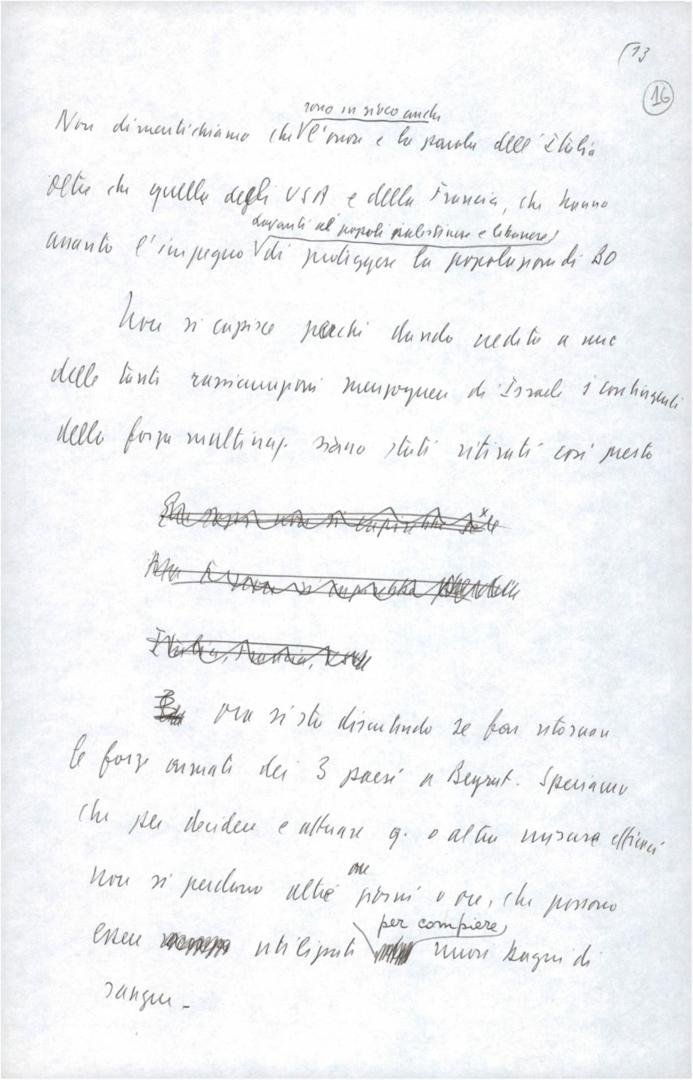 13
16
sono in gioco anche
Non dimentichiamo che l'onore e la parola dell'Italia
oltre che quella degli USA e della Francia, che hanno
davanti ai popoli palestinese e libanese
assunto l'impegno di proteggere la popolazione di BO
Non si capisce perché dando credito a una
delle tante rassicurazioni menzognere di Israele i contingenti
della forza multinaz siano stati ritirati così presto
Italia, Francia, USA
ora si sta discutendo se far ritornare
le forze armate dei 3 paesi a Beyrut. Speriamo
che per decidere e attuare q. o altre misure efficaci
non si perdano altri giorni o ore, che possono
per compiere
essere utilizzati nuovi bagni di
sangue -